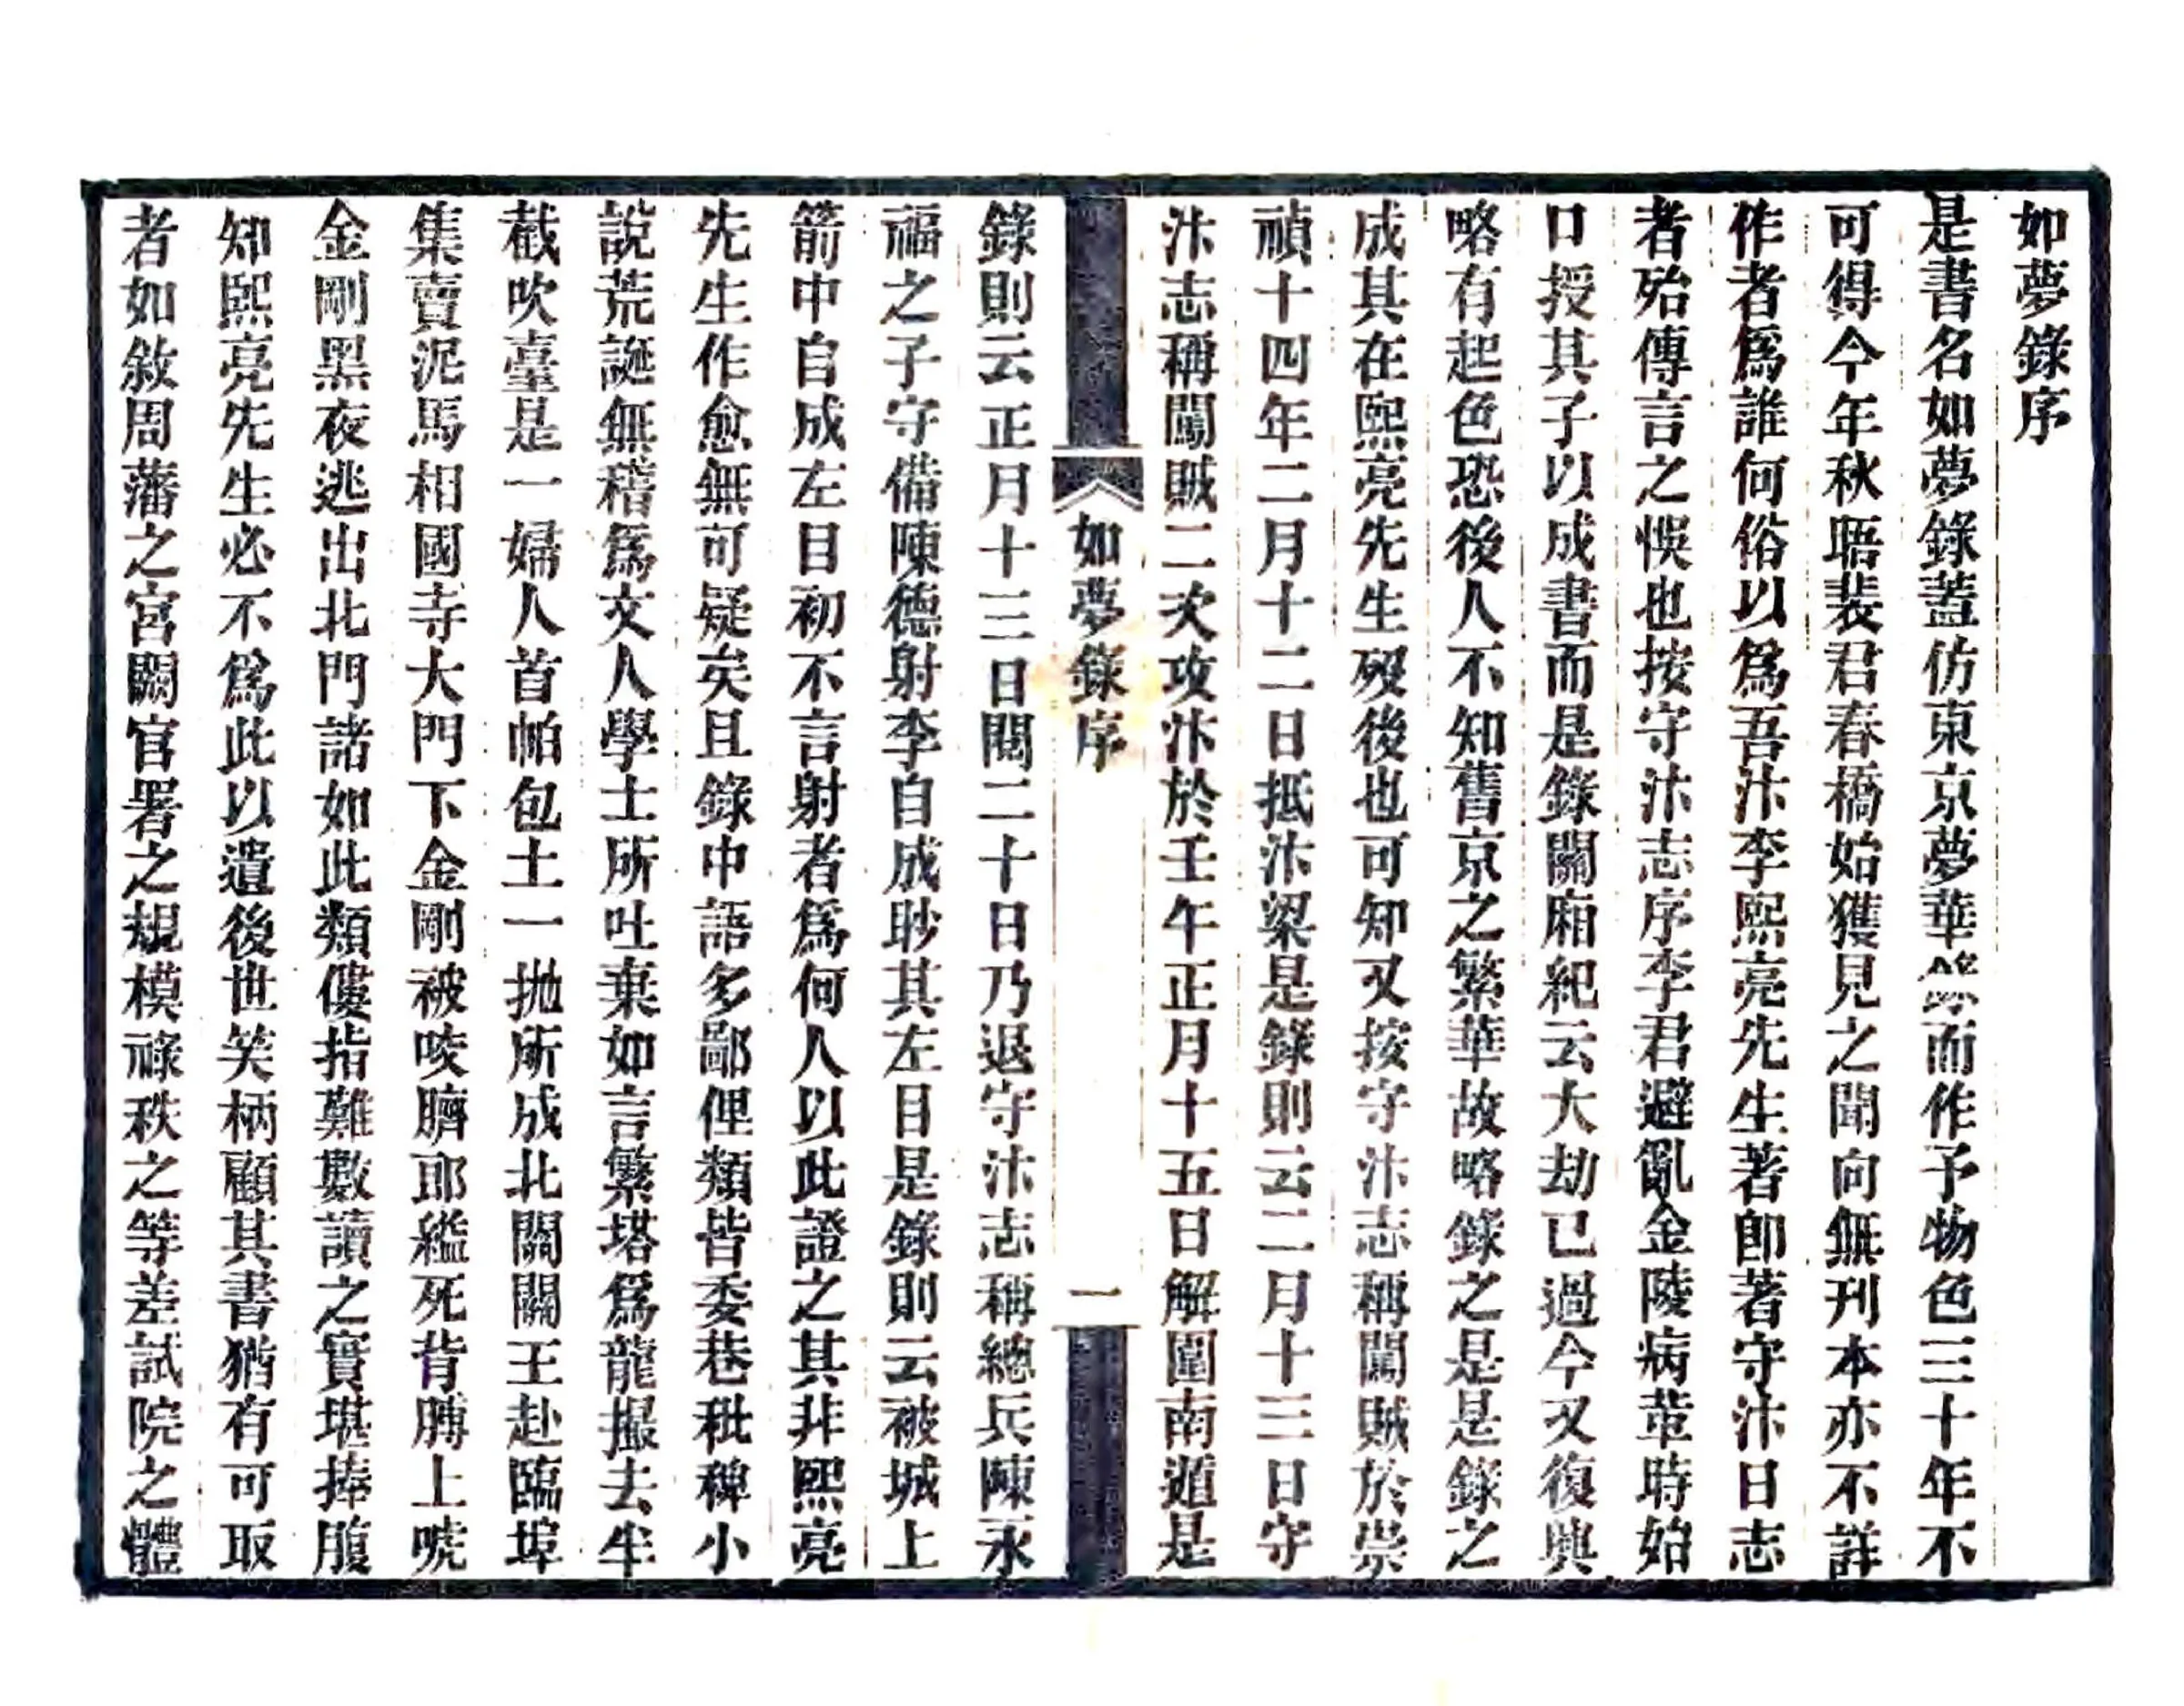 如夢錄序
是書名如夢錄蓋仿東京夢華錄而作予物色三十年不
可得今年秋晤裴君春橋始獲見之聞向無刊本亦不詳
作者爲誰何俗以爲吾汴李熙亮先生著卽著守汴日志
者殆傳言之悞也按守汴志序李君避亂金陵病葷時始
口授其子以成書而是錄關廂紀云大劫已過今又復興
略有起色恐後人不知舊京之繁華故略錄之是是錄之
成其在熙亮先生歿後也可知又按守汴志稱闖賊於崇
禎十四年二月十二日抵汴梁是錄則云二月十三日守
汴志稱闖賊二次攻汴於壬午正月十五日解圍南遁是
如夢錄序
一
錄則云正月十三日閱二十日乃退守汴志稱總兵陳永
福之子守備陳德射李自成眇其左目是錄則云被城上
箭中自成左目初不言射者爲何人以此證之其非熙亮
先生作愈無可疑矣且錄中語多鄙俚類皆委巷秕稗小
說荒誕無稽爲文人學士所吐棄如言繁塔爲龍撮去半
截吹臺是一婦人首帕包土一拋所成北關關王赴臨埠
集賣泥馬相國寺大門下金剛被咬臍耶縊死背膊上唬
金剛黑夜逃出北門諸如此類僂指難數讀之實堪捧腹
知熙亮先生必不爲此以遺後世笑柄顧其書猶有可取
者如敘周藩之宮闕官署之規模祿秩之等差試院之體